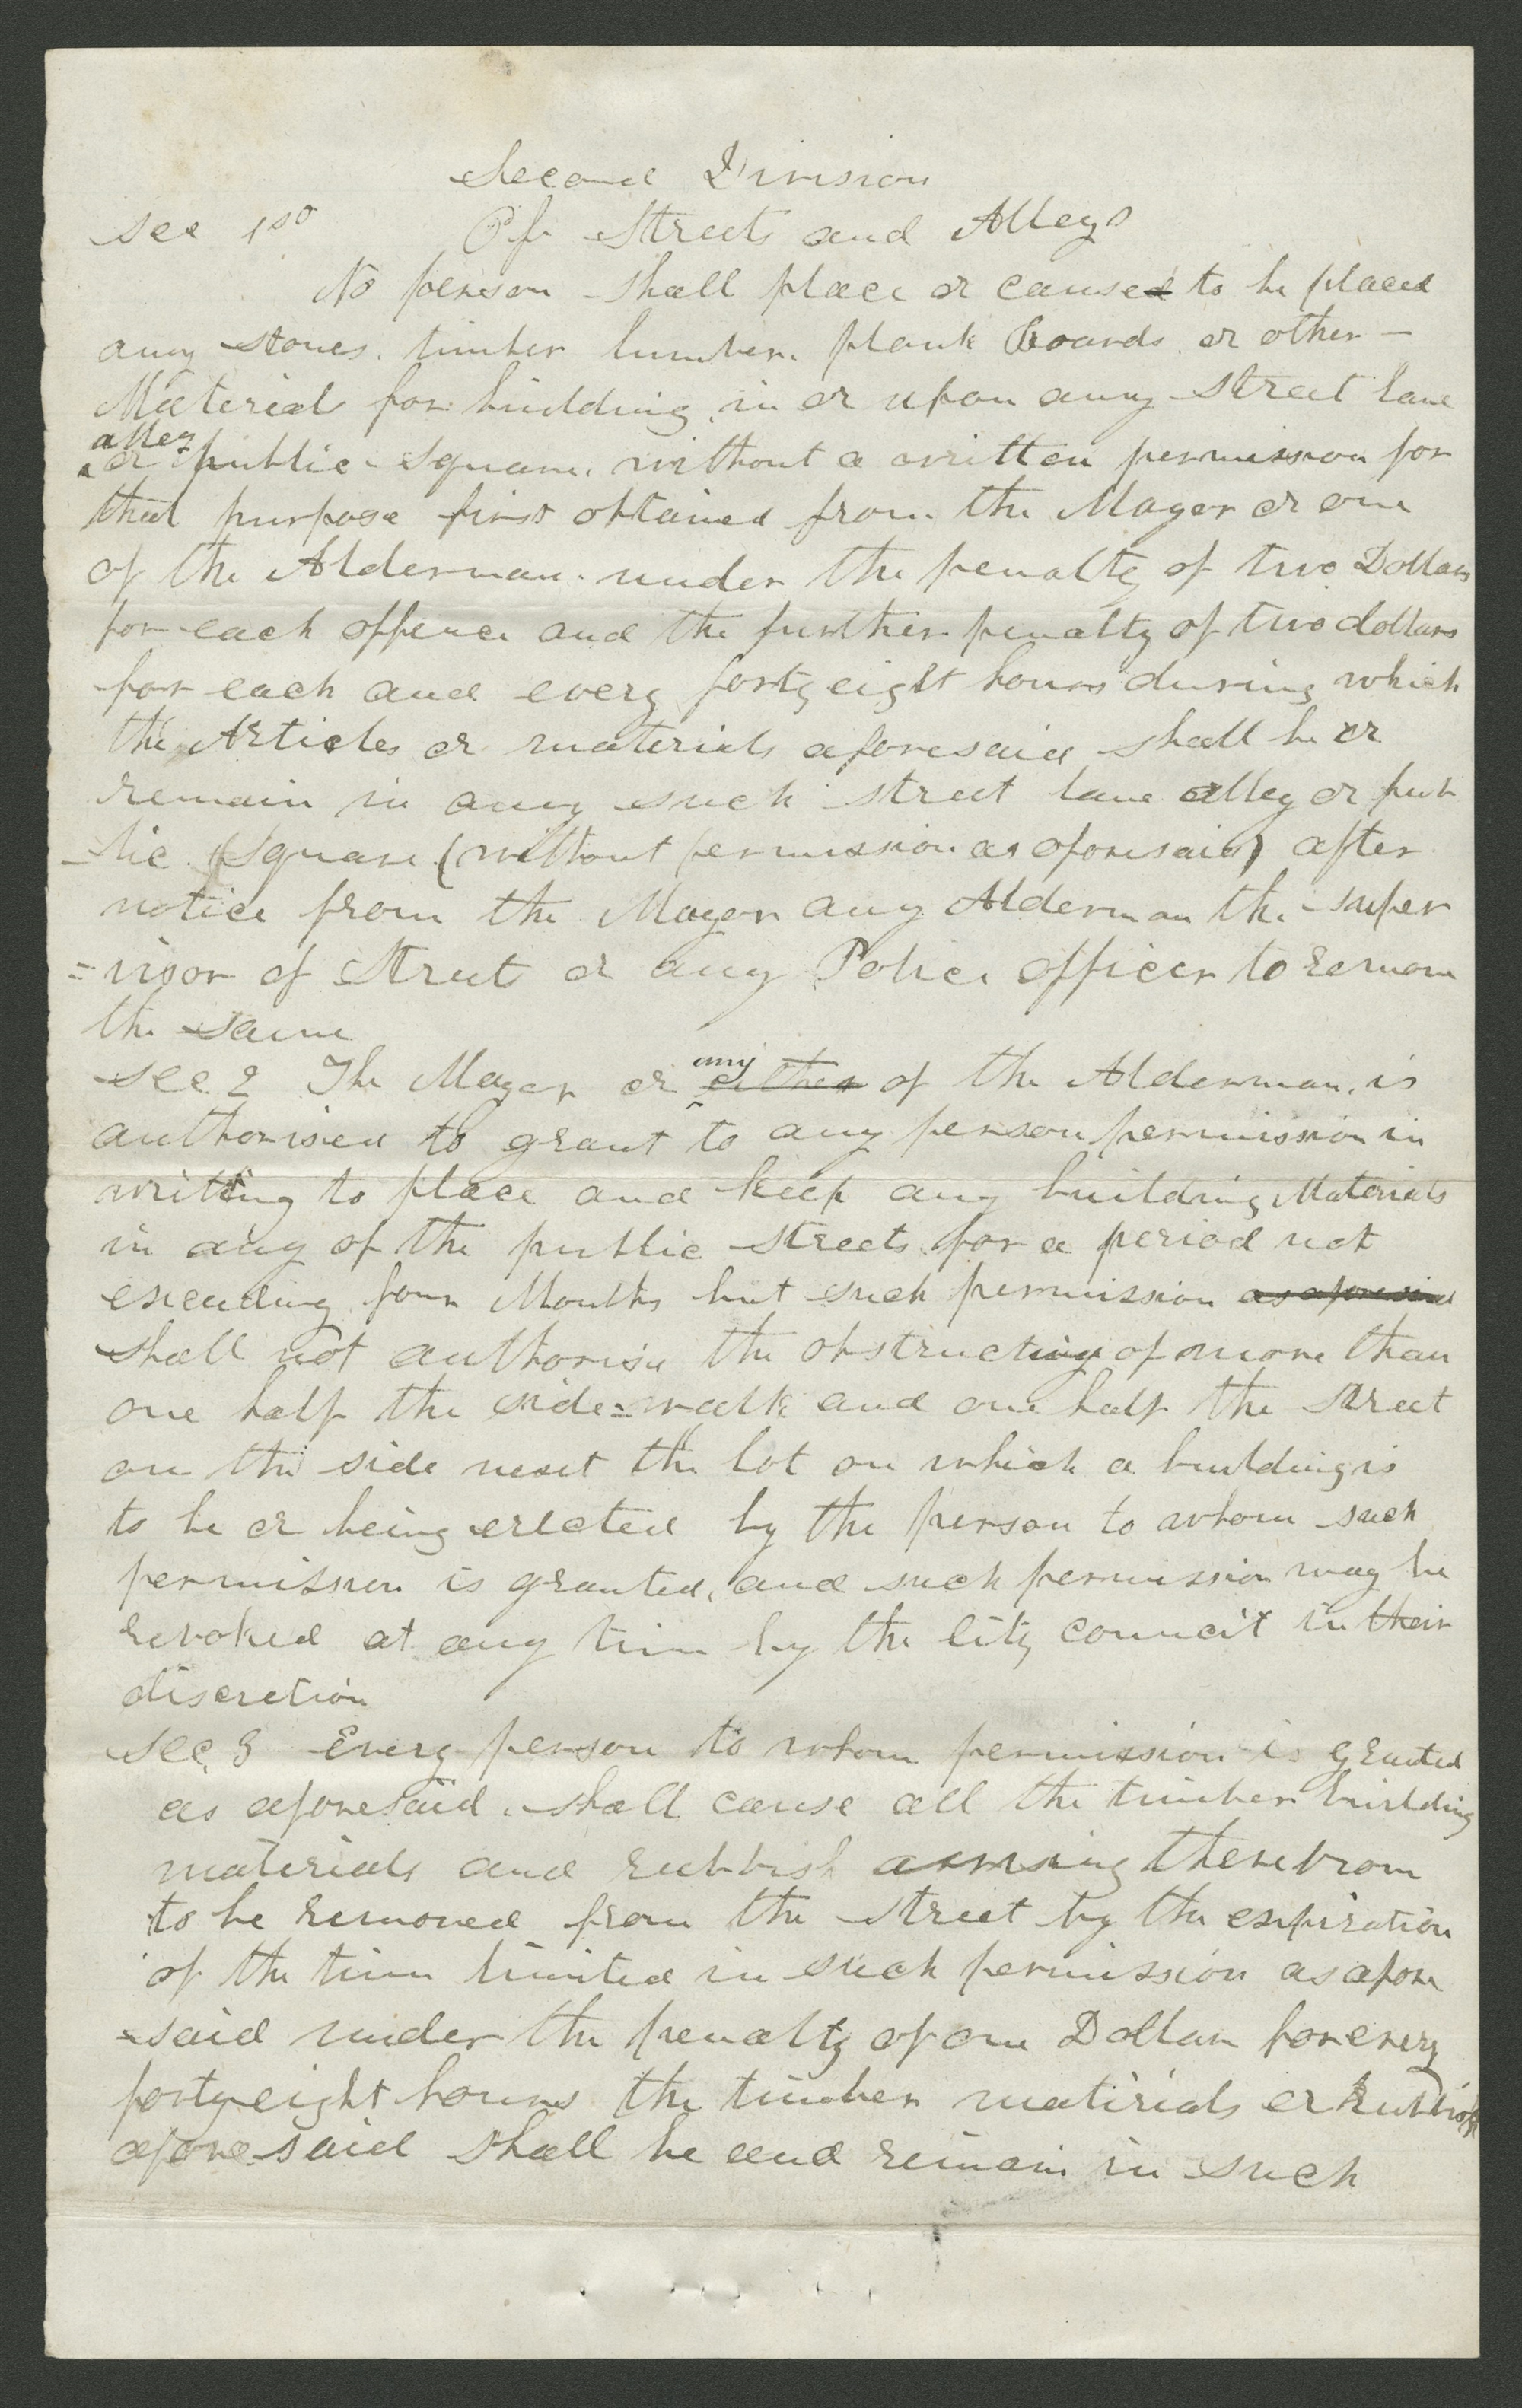 Second Division
Sec 1st Of Streets and Alleys
No person shall place or caused to be placed
any stones. timber lumber. plank Boards. or other —
Material for building, in or upon any street lane
alley
or public square. without a written permission for
that purpose first obtained from the Mayor or one
of the Alderman. under the penalty of two Dollars
for each offence and the further penalty of two dollars
for each and every forty eight hours during which
the Articles or materials aforesaid shall be or
remain in any such street lane alley or pub
-lic Square (without permission as aforesaid) after
notice from the Mayor any Alderman the super
=visor of Streets or any Police officer to remove
the same
Sec. 2 The Mayor or any either of the Alderman. is
authorised to grant to any person permission in
writting to place and keep any building Materials
in any of the public streets. for a period not
exceeding four Months but such permission as aforesaid
shall not authorise the obstructing of more than
one half the side=walk and one half the street
on the side next the lot on which a building is
to be or being erected by the person to whom such
permission is granted, and such permission may be
revoked at any time by the city council in their
discretion
Sec. 3 Every person to whom permission is granted
as aforesaid. shall cause all the timber building
materials and rubbish arising therefrom
to be removed from the street by the expiration
of the time limited in such permission as afore
=said under the penalty of one Dollar for every
forty eight hours the timber materials or Rubbish
aforesaid shall be and remain in such